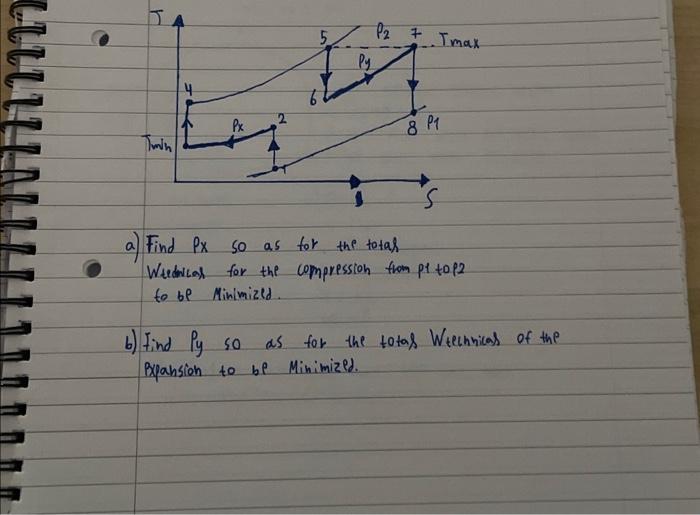 T
5 P2 7 Tmax
Py
4
6
Px 2
8 P1
Tmin
1
S
a) Find Px so as for the total
Wtechnical for the compression from p1 to p2
to be Minimized.
b) Find Py so as for the total Wtechnical of the
Expansion to be Minimized.